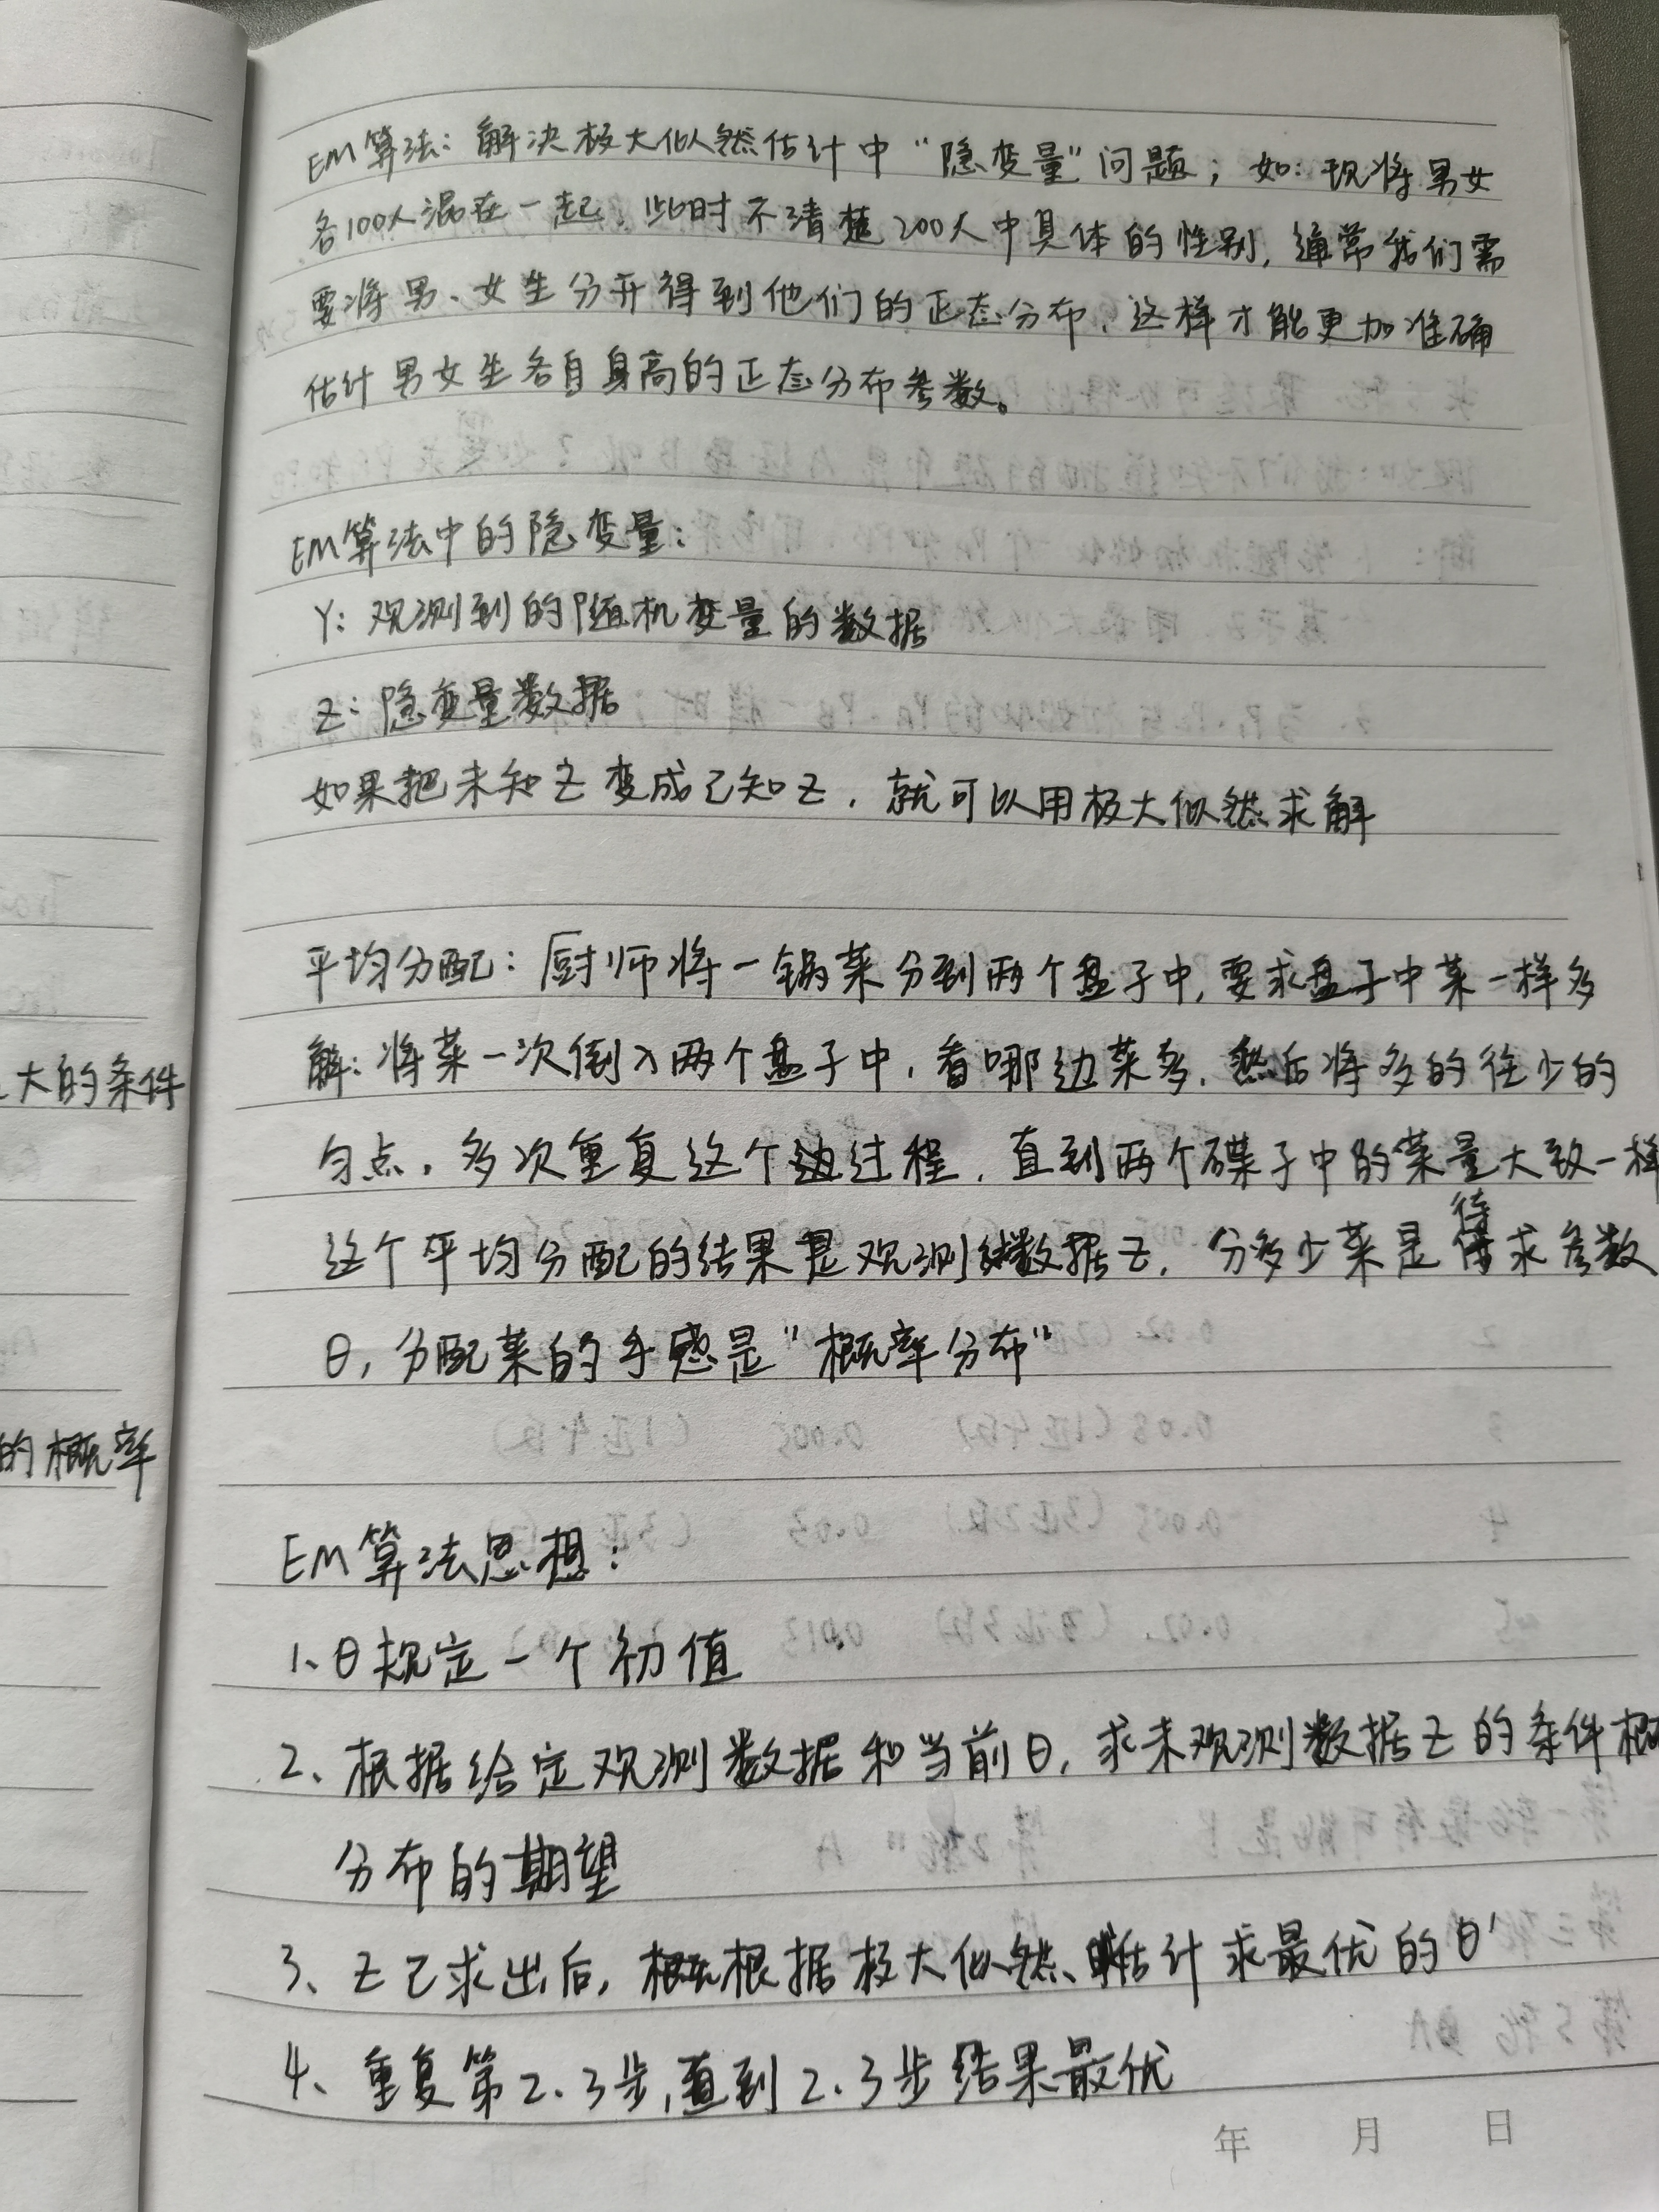 EM算法：解决极大似然估计中“隐变量”问题；如：现将男女
各100人混在一起，此时不清楚200人中具体的性别，通常我们需
要将男、女生分开得到他们的正态分布，这样才能更加准确
估计男女生各自身高的正态分布参数。
EM算法中的隐变量：
Y：观测到的随机变量的数据
Z：隐变量数据
如果把未知Z变成已知Z，就可以用极大似然求解
平均分配：厨师将一锅菜分到两个盘子中，要求盘子中菜一样多
解：将菜一次倒入两个盘子中，看哪边菜多，然后将多的往少的
大的条件
匀点，多次重复这个过程，直到两个碟子中的菜量大致一样
这个平均分配的结果是观测数据Z，分多少菜是待求参数
θ，分配菜的手感是“概率分布”
的概率
EM算法思想：
1、θ规定一个初值
2、根据给定观测数据和当前θ，求未观测数据Z的条件概
分布的期望
3、Z已求出后，根据极大似然估计求最优的θ'
4、重复第2.3步，直到2.3步结果最优
年 月 日